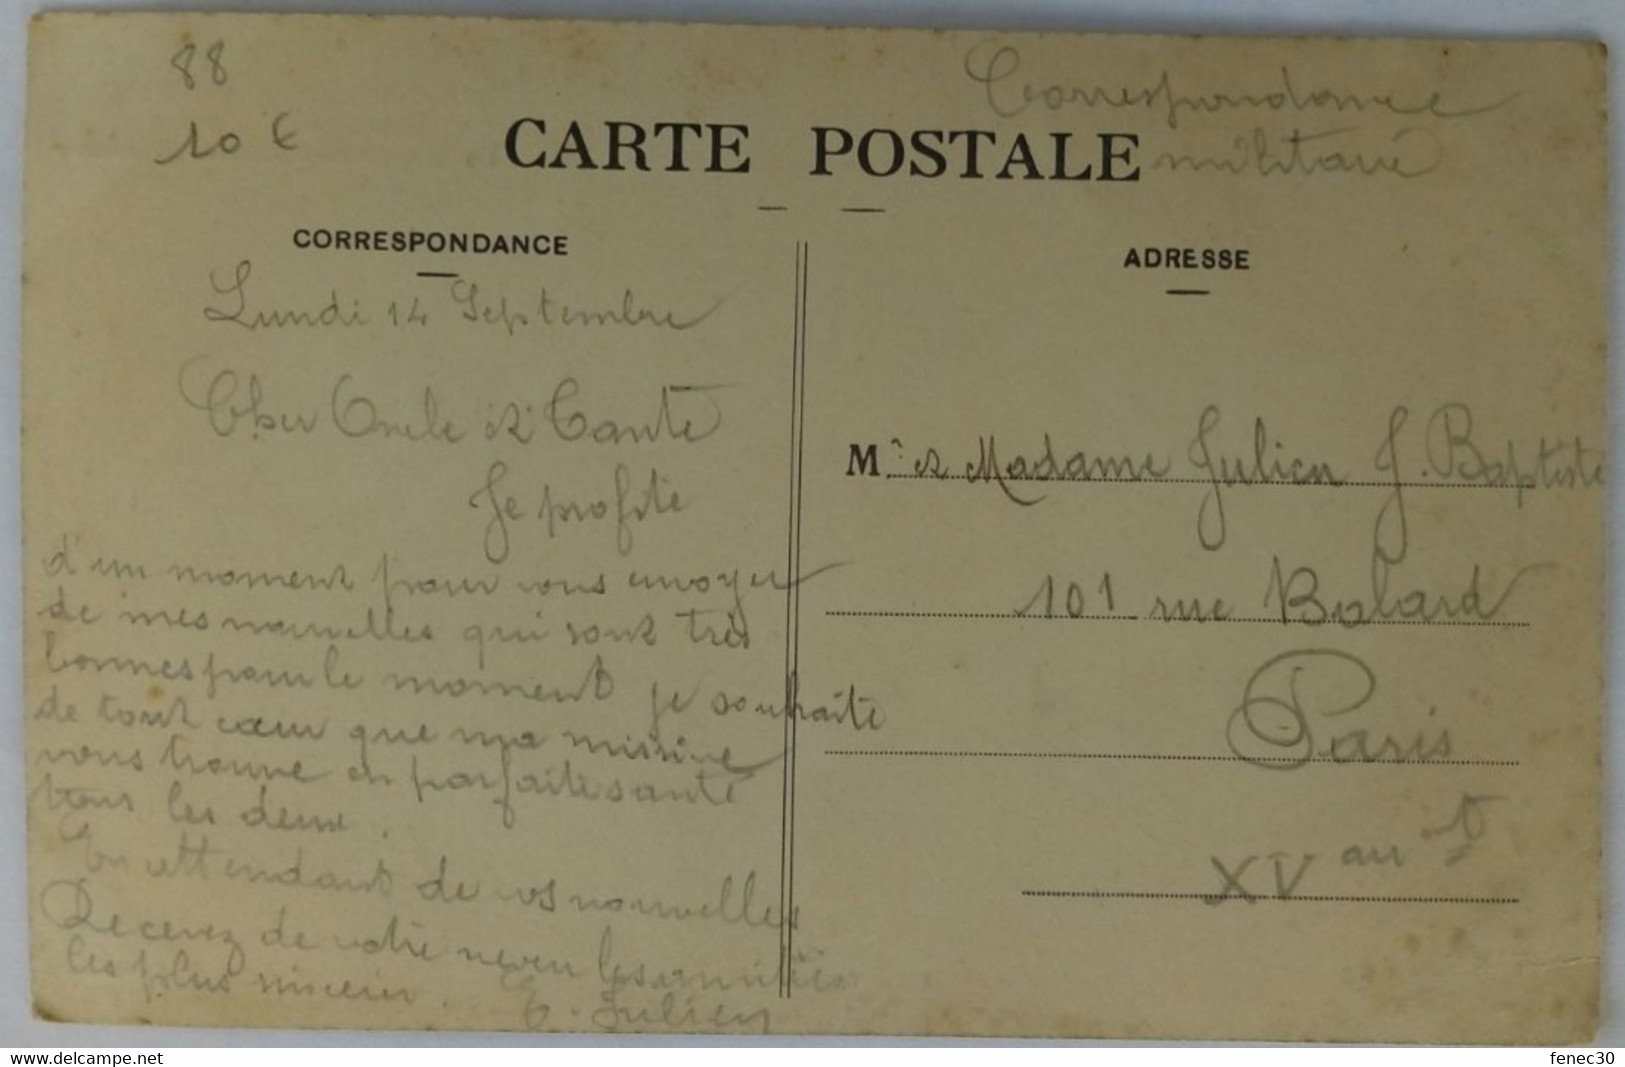 88
10 €
Correspondance
militaire
CARTE POSTALE
CORRESPONDANCE
Lundi 14 Septembre
Cher Oncle et Tante
Je profite
d'un moment pour vous envoyer
de mes nouvelles qui sont très
bonnes pour le moment je souhaite
de tout cœur que ma missive
vous trouve en parfaite santé
tous les deux.
En attendant de vos nouvelles
Recevez de votre neveu les amitiés
les plus sincères.
E. Julien
ADRESSE
Mr et Madame Julien J. Baptiste
101 rue Balard
Paris
XV arrt
www.delcampe.net
fenec30